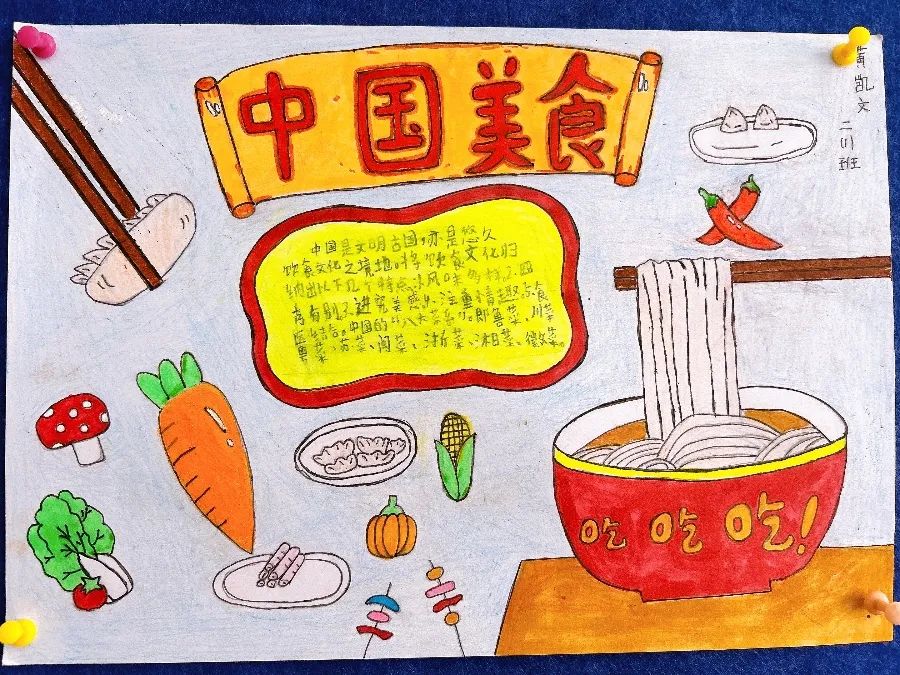 中国美食
黄凯文
二(1)班
中国是文明古国,亦是悠久
饮食文化之境地。将饮食文化归
纳出以下几个特点:1.风味多样,2.四
季有别,3.讲究美感,4.注重情趣,5.食
医结合。中国的“八大菜系”。即鲁菜、川菜
粤菜、苏菜、闽菜、浙菜、湘菜、徽菜。
吃吃吃!